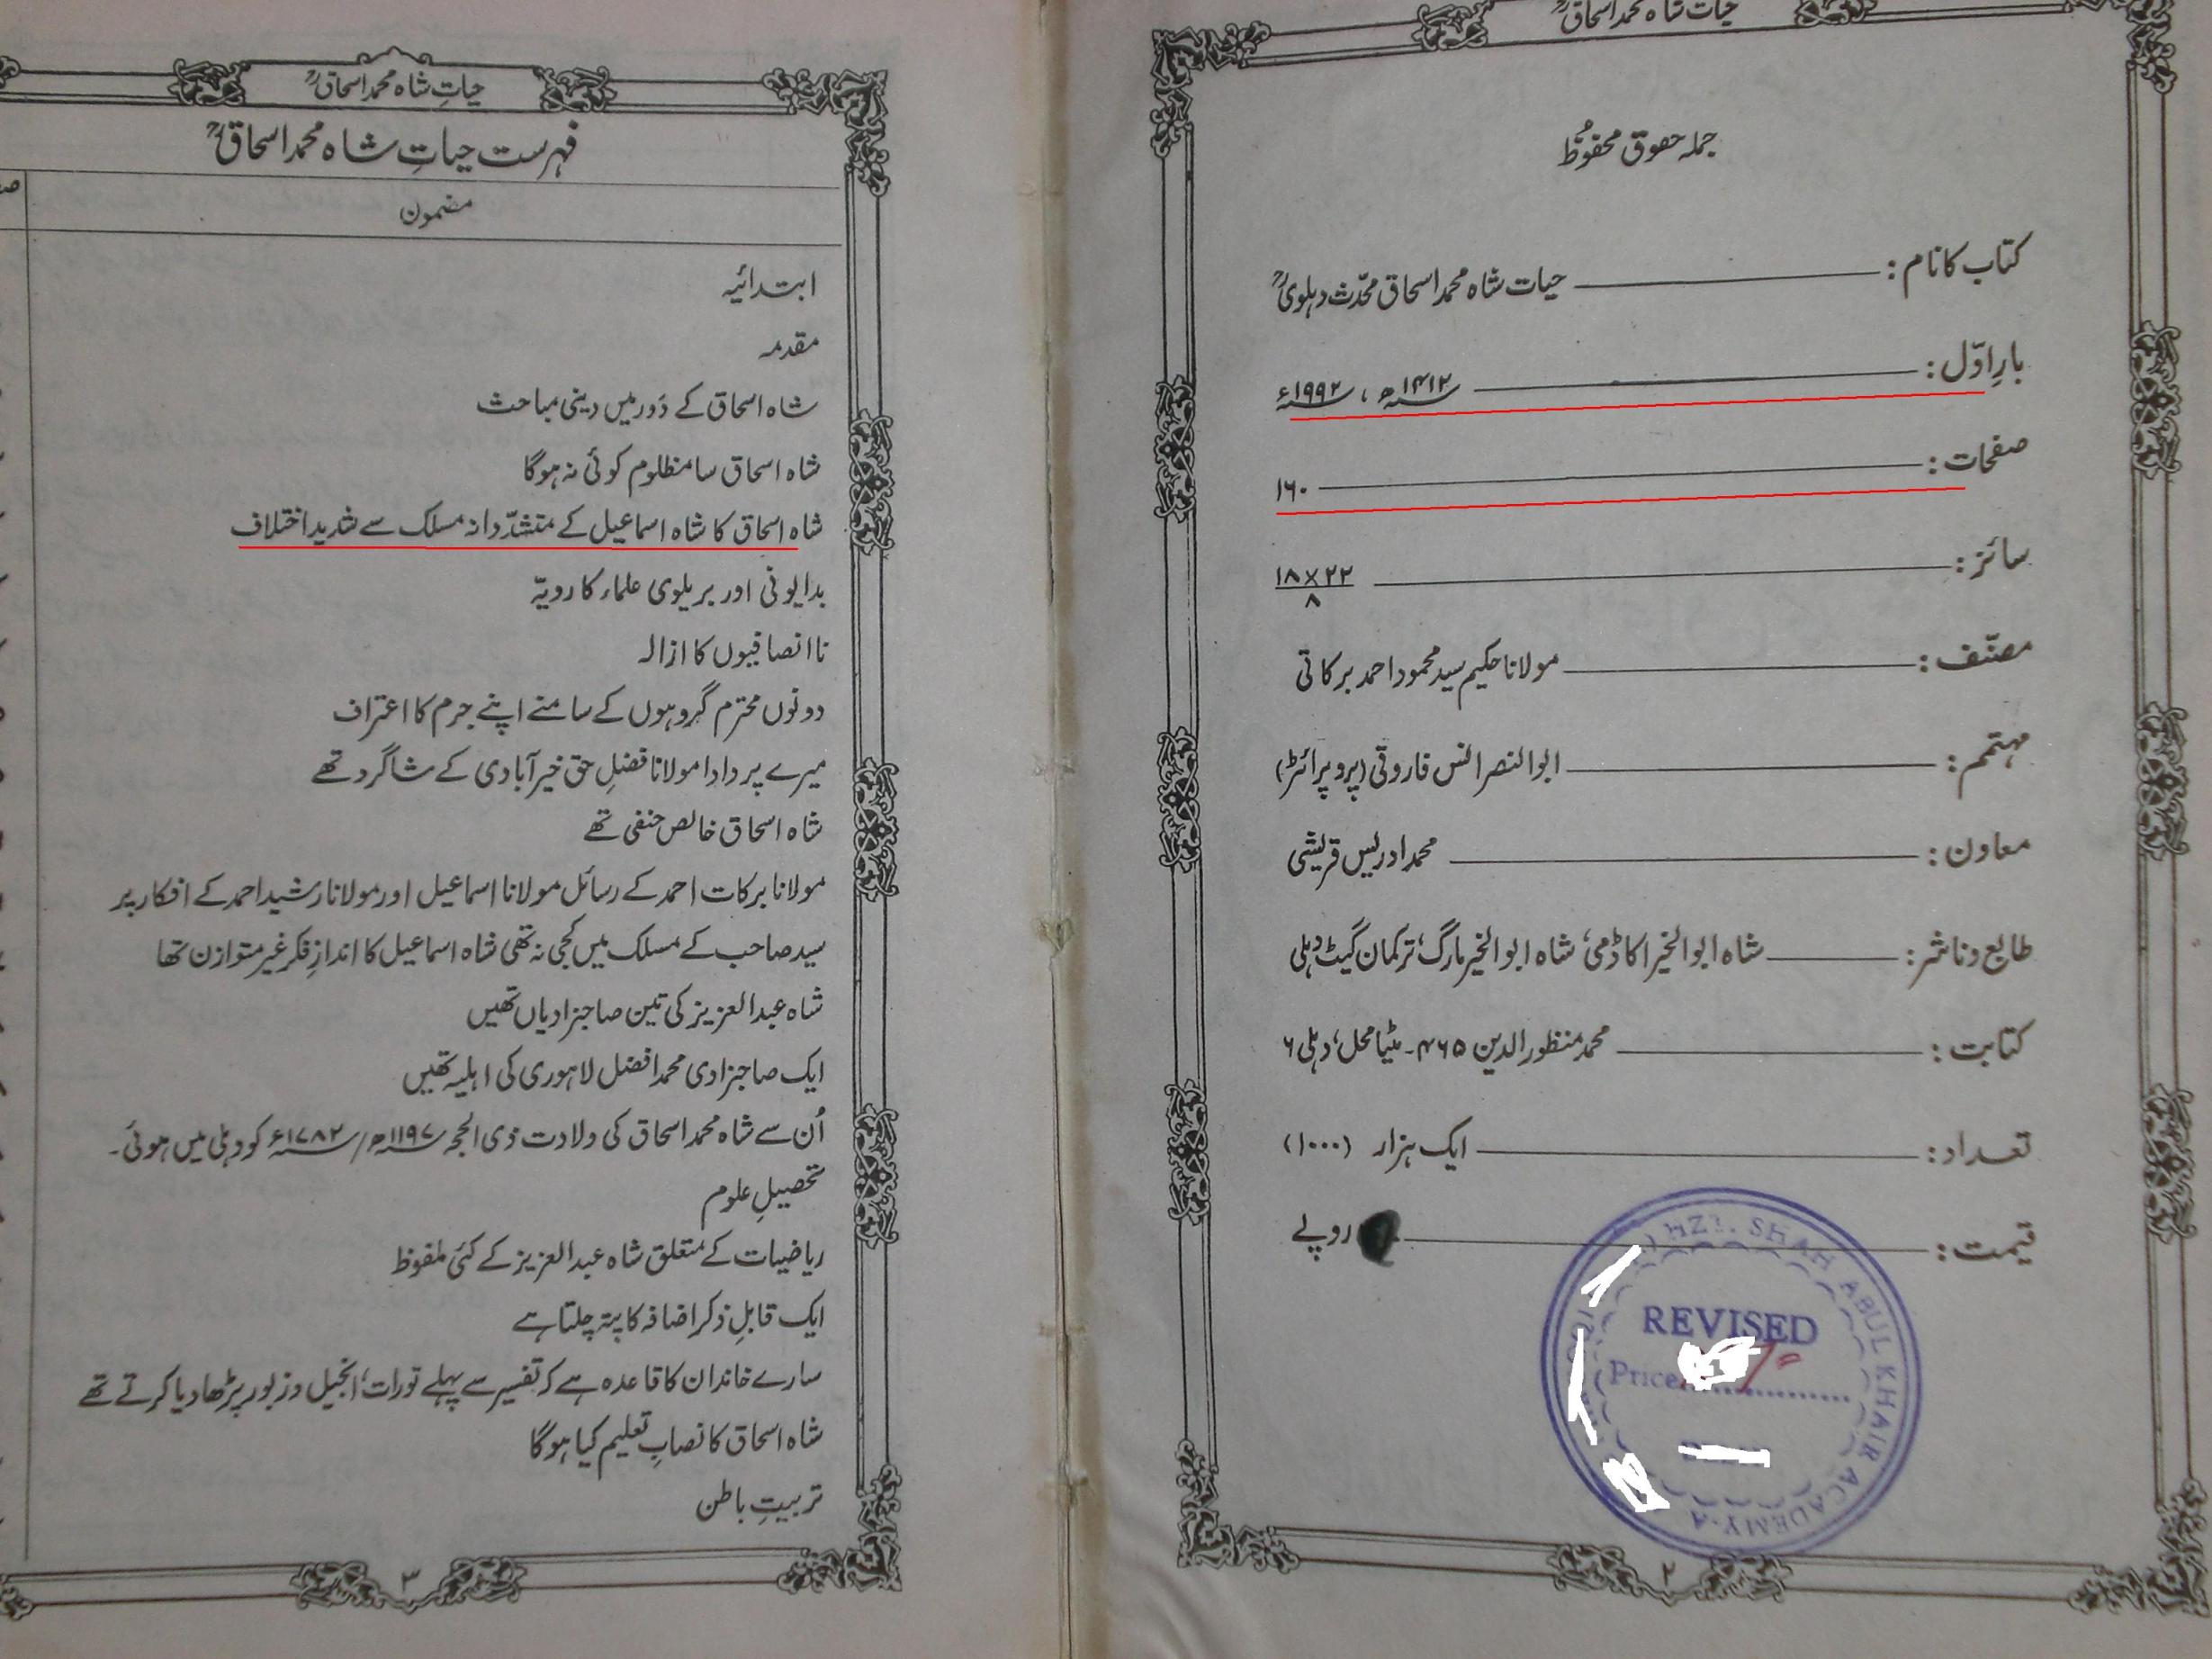 حیات شاہ محمد اسحاقؒ
جملہ حقوق محفوظ
کتاب کا نام : حیات شاہ محمد اسحاق محدّث دہلویؒ
بارِ اوّل : ۱۴۱۲ھ ، ۱۹۹۲ء
صفحات : ۱۶۰
سائز : ۲۲×۱۸
۸
مصنّف : مولانا حکیم سید محمود احمد برکاتی
مہتمم : ابوالنصر انس فاروقی (پروپرائٹر)
معاون : محمد ادریس قریشی
طابع و ناشر : شاہ ابوالخیر اکاڈمی، شاہ ابوالخیر مارگ، ترکمان گیٹ دہلی
کتابت : محمد منظور الدین ۴۶۵۔ مٹیا محل، دہلی ۶
تعداد : ایک ہزار (۱۰۰۰)
قیمت : روپے
HZT. SHAH ABUL KHAIR ACADEMY
REVISED
Price
۲
حیاتِ شاہ محمد اسحاقؒ
فہرست حیاتِ شاہ محمد اسحاقؒ
مضمون
ابتدائیہ
مقدمہ
شاہ اسحاق کے دَور میں دینی مباحث
شاہ اسحاق سا مظلوم کوئی نہ ہوگا
شاہ اسحاق کا شاہ اسماعیل کے متشدّدانہ مسلک سے شدید اختلاف
بدایونی اور بریلوی علماء کا رویّہ
ناانصافیوں کا ازالہ
دونوں محترم گروہوں کے سامنے اپنے جرم کا اعتراف
میرے پردادا مولانا فضلِ حق خیرآبادی کے شاگرد تھے
شاہ اسحاق خالص حنفی تھے
مولانا برکات احمد کے رسائل مولانا اسماعیل اور مولانا رشید احمد کے افکار پر
سید صاحب کے مسلک میں کجی نہ تھی شاہ اسماعیل کا اندازِ فکر غیر متوازن تھا
شاہ عبدالعزیز کی تین صاحبزادیاں تھیں
ایک صاحبزادی محمد افضل لاہوری کی اہلیہ تھیں
اُن سے شاہ محمد اسحاق کی ولادت ذی الحجہ ۱۱۹۷ھ/۱۷۸۲ء کو دہلی میں ہوئی۔
تحصیلِ علوم
ریاضیات کے متعلق شاہ عبدالعزیز کے کئی ملفوظ
ایک قابلِ ذکر اضافہ کا پتہ چلتا ہے
سارے خاندان کا قاعدہ ہے کہ تفسیر سے پہلے تورات، انجیل و زبور پڑھا دیا کرتے تھے
شاہ اسحاق کا نصابِ تعلیم کیا ہوگا
تربیتِ باطن
۳